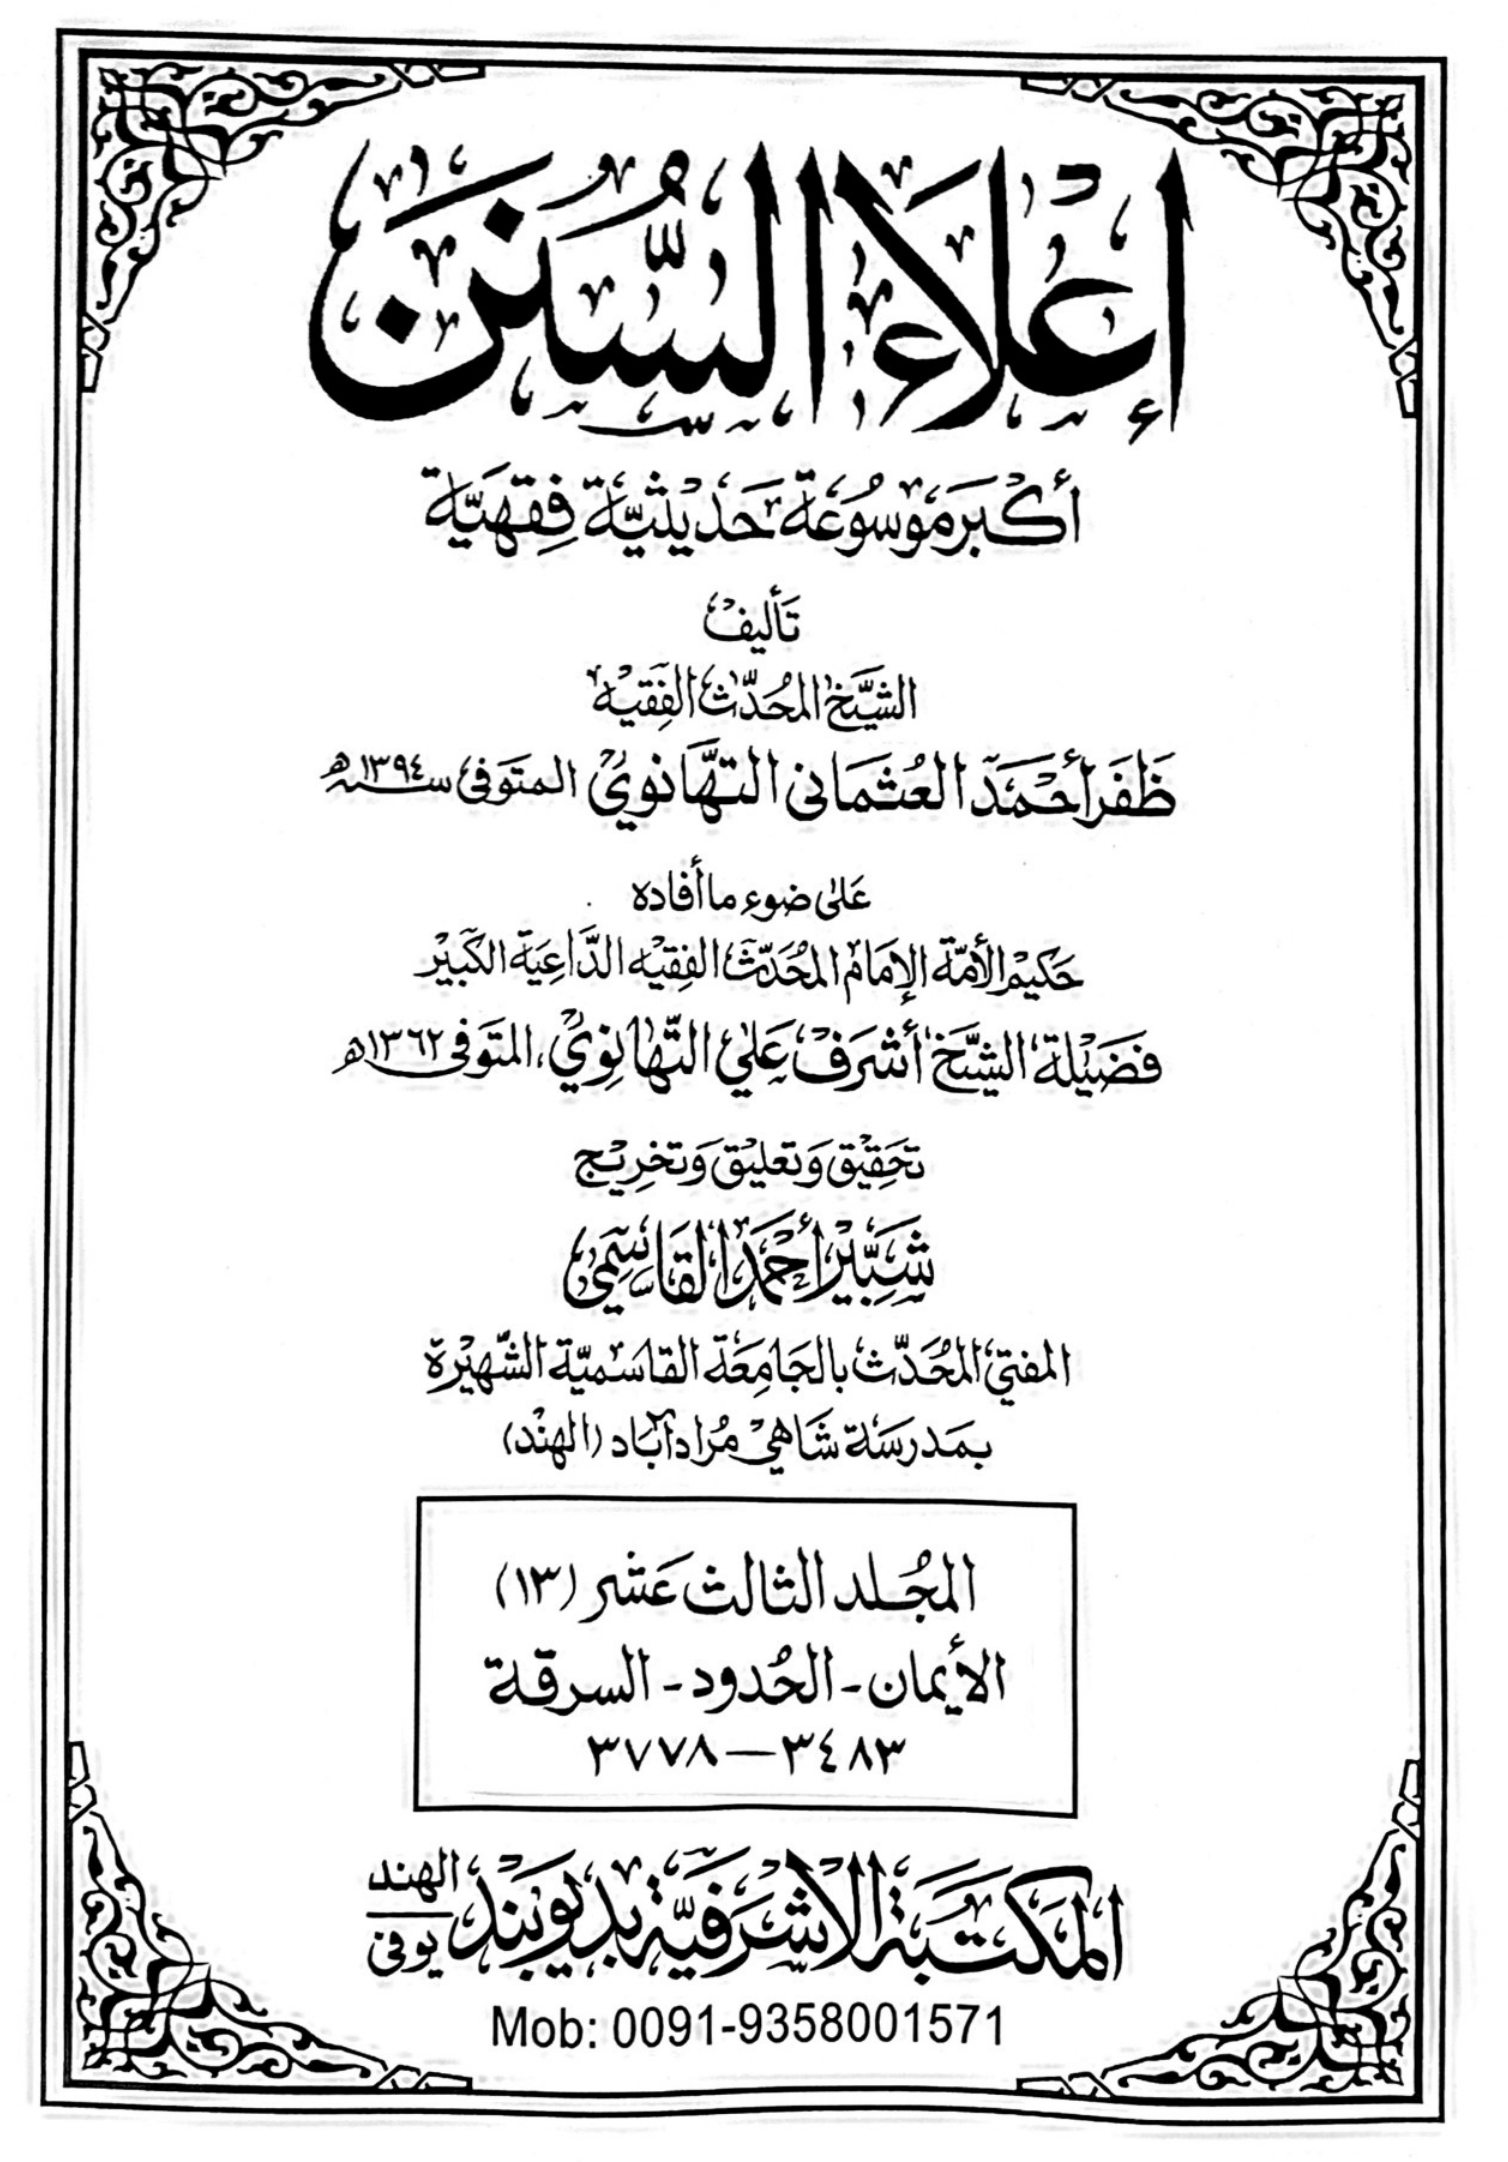 إعلاء السنن
أكبر موسوعة حديثية فقهية
تأليف
الشيخ المحدث الفقيه
ظفر أحمد العثماني التهانوي المتوفى سنه ١٣٩٤ھ
على ضوء ما أفاده
حكيم الأمة الإمام المحدث الفقيه الداعية الكبير
فضيلة الشيخ أشرف علي التهانوي، المتوفى ١٣٦٢ھ
تحقيق وتعليق وتخريج
شبير أحمد القاسمي
المفتي المحدث بالجامعة القاسمية الشهيرة
بمدرسة شاهي مرادآباد (الهند)
المجلد الثالث عشر (١٣)
الأيمان - الحدود - السرقة
٣٤٨٣ — ٣٧٧٨
المكتبة الاشرفية بديوبند يوفي الهند
Mob: 0091-9358001571